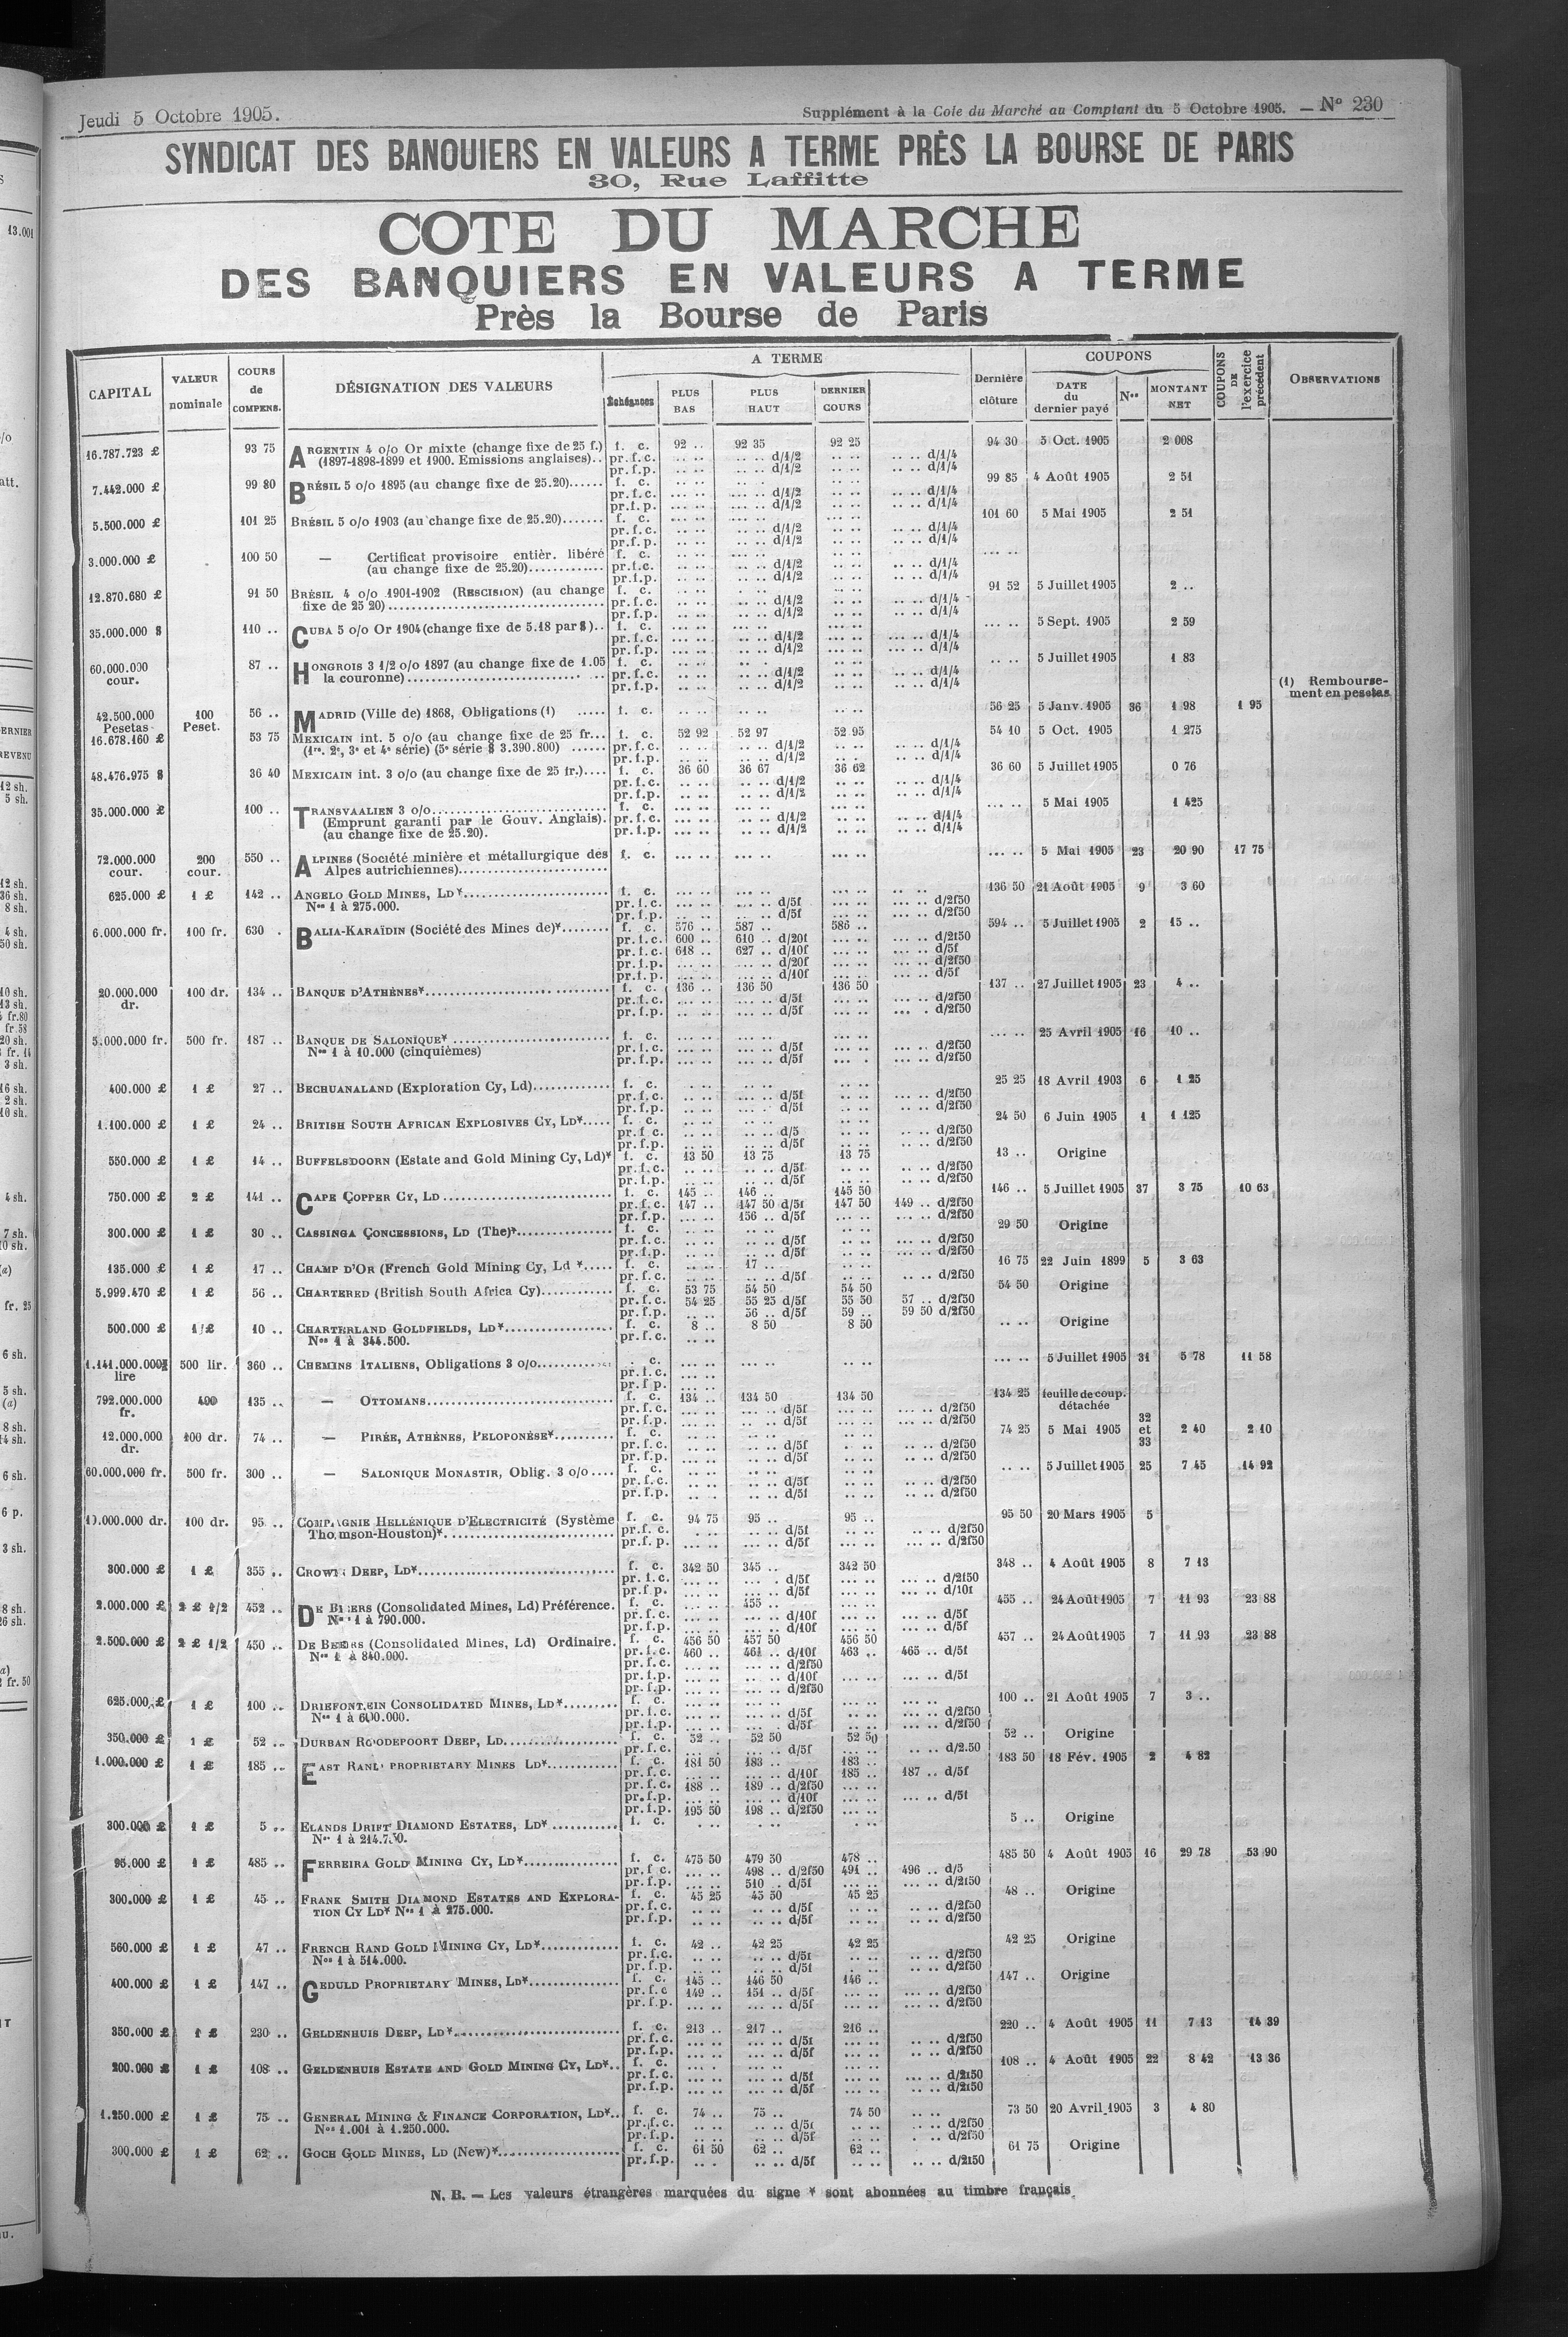 Jeudi 5 Octobre 1905.
Supplément à la Cote du Marché au Comptant du 5 Octobre 1905. — N° 230
SYNDICAT DES BANQUIERS EN VALEURS A TERME PRÈS LA BOURSE DE PARIS
30, Rue Laffitte
COTE DU MARCHE
DES BANQUIERS EN VALEURS A TERME
Près la Bourse de Paris
CAPITAL VALEUR nominale COURS de COMPENS. DÉSIGNATION DES VALEURS A TERME Échéances PLUS BAS PLUS HAUT DERNIER COURS Dernière clôture COUPONS DATE du dernier payé Nos MONTANT NET COUPONS DE l'exercice précédent OBSERVATIONS
16.787.723 £ 93 75 ARGENTIN 4 o/o Or mixte (change fixe de 25 f.) f. c. 92 .. 92 35 92 25 94 30 5 Oct. 1905 2 008
(1897-1898-1899 et 1900. Emissions anglaises).. pr.f.c. .. .. .. .. d/1/2 .. .. .. .. d/1/4
pr.f.p. .. .. .. .. d/1/2 .. .. .. .. d/1/4
7.442.000 £ 99 80 BRÉSIL 5 o/o 1895 (au change fixe de 25.20)...... f. c. 99 85 4 Août 1905 2 51
pr.f.c. d/1/2 d/1/4
pr.f.p. d/1/2 d/1/4
5.500.000 £ 101 25 BRÉSIL 5 o/o 1903 (au change fixe de 25.20)....... f. c. 101 60 5 Mai 1905 2 51
pr.f.c. d/1/2 d/1/4
pr.f.p. d/1/2 d/1/4
3.000.000 £ 100 50 — Certificat provisoire entièr. libéré f. c.
(au change fixe de 25.20)............ pr.f.c. d/1/2 d/1/4
pr.f.p. d/1/2 d/1/4
12.870.680 £ 91 50 BRÉSIL 4 o/o 1901-1902 (RESCISION) (au change f. c. 91 52 5 Juillet 1905 2 ..
fixe de 25 20) pr.f.c. d/1/2 d/1/4
pr.f.p. d/1/2 d/1/4
35.000.000 $ 110 .. CUBA 5 o/o Or 1904 (change fixe de 5.18 par $).. f. c. 5 Sept. 1905 2 59
pr.f.c. d/1/2 d/1/4
pr.f.p. d/1/2 d/1/4
60.000.000 cour. 87 .. HONGROIS 3 1/2 o/o 1897 (au change fixe de 1.05 f. c. 5 Juillet 1905 1 83
la couronne) pr.f.c. d/1/2 d/1/4
pr.f.p. d/1/2 d/1/4
(1) Remboursement en pesetas
42.500.000 Pesetas 100 Peset. 56 .. MADRID (Ville de) 1868, Obligations (1) ..... f. c. 56 25 5 Janv. 1905 36 1 98 1 95
16.678.160 £ 53 75 MEXICAIN int. 5 o/o (au change fixe de 25 fr... f. c. 52 92 52 97 52 95 54 10 5 Oct. 1905 1 275
(1re, 2e, 3e et 4e série) (5e série $ 3.390.800) ...... pr.f.c. d/1/2 d/1/4
pr.f.p. d/1/2 d/1/4
48.476.975 $ 36 40 MEXICAIN int. 3 o/o (au change fixe de 25 fr.).... f. c. 36 60 36 67 36 62 36 60 5 Juillet 1905 0 76
pr.f.c. d/1/2 d/1/4
pr.f.p. d/1/2 d/1/4
35.000.000 £ 100 .. TRANSVAALIEN 3 o/o f. c. 5 Mai 1905 1 425
(Emprunt garanti par le Gouv. Anglais). pr.f.c. d/1/2 d/1/4
(au change fixe de 25.20). pr.f.p. d/1/2 d/1/4
72.000.000 cour. 200 cour. 550 .. ALPINES (Société minière et métallurgique des f. c. 5 Mai 1905 23 20 90 17 75
Alpes autrichiennes)
625.000 £ 1 £ 142 .. ANGELO GOLD MINES, LD* f. c. 136 50 21 Août 1905 9 3 60
Nos 1 à 275.000. pr.f.c. d/5f d/2f50
pr.f.p. d/5f d/2f50
6.000.000 fr. 100 fr. 630 . BALIA-KARAÏDIN (Société des Mines de)* f. c. 576 .. 587 .. 586 .. 594 .. 5 Juillet 1905 2 15 ..
pr.f.c. 600 .. 610 .. d/20f d/2f50
pr.f.c. 618 .. 627 .. d/10f d/5f
pr.f.p. d/20f d/2f50
pr.f.p. d/10f d/5f
20.000.000 dr. 100 dr. 134 .. BANQUE D'ATHÈNES* f. c. 136 .. 136 50 136 50 137 .. 27 Juillet 1905 23 4 ..
pr.f.c. d/5f d/2f50
pr.f.p. d/5f d/2f50
5.000.000 fr. 500 fr. 187 .. BANQUE DE SALONIQUE* f. c. 25 Avril 1905 16 10 ..
Nos 1 à 10.000 (cinquièmes) pr.f.c. d/5f d/2f50
pr.f.p. d/5f d/2f50
400.000 £ 1 £ 27 .. BECHUANALAND (Exploration Cy, Ld) f. c. 25 25 18 Avril 1903 6 1 25
pr.f.c. d/5f d/2f50
pr.f.p. d/5f d/2f50
1.100.000 £ 1 £ 24 .. BRITISH SOUTH AFRICAN EXPLOSIVES CY, LD* f. c. 24 50 6 Juin 1905 1 1 125
pr.f.c. d/5 d/2f50
pr.f.p. d/5f d/2f50
550.000 £ 1 £ 14 .. BUFFELSDOORN (Estate and Gold Mining Cy, Ld)* f. c. 13 50 13 75 13 75 13 .. Origine
pr.f.c. d/5f d/2f50
pr.f.p. d/5f d/2f50
750.000 £ 2 £ 141 .. CAPE COPPER CY, LD f. c. 145 .. 146 .. 145 50 146 .. 5 Juillet 1905 37 3 75 10 63
pr.f.c. 147 .. 147 50 d/5f 147 50 149 .. d/2f50
pr.f.p. 156 .. d/5f d/2f50
300.000 £ 1 £ 30 .. CASSINGA CONCESSIONS, LD (The)* f. c. 29 50 Origine
pr.f.c. d/5f d/2f50
pr.f.p. d/5f d/2f50
135.000 £ 1 £ 17 .. CHAMP D'OR (French Gold Mining Cy, Ld *..... f. c. 17 .. 16 75 22 Juin 1899 5 3 63
pr.f.c. d/5f d/2f50
5.999.470 £ 1 £ 56 .. CHARTERED (British South Africa Cy) f. c. 53 75 54 50 54 50 54 50 Origine
pr.f.c. 54 25 55 25 d/5f 55 50 57 .. d/2f50
pr.f.p. 56 .. d/5f 59 .. 59 50 d/2f50
500.000 £ 1 £ 10 .. CHARTERLAND GOLDFIELDS, LD* f. c. 8 .. 8 50 8 50 Origine
Nos 1 à 344.500. pr.f.c.
1.141.000.000 lire 500 lir. 360 .. CHEMINS ITALIENS, Obligations 3 o/o . c. 5 Juillet 1905 31 5 78 11 58
pr.f.c.
pr.f.p.
792.000.000 fr. 400 135 .. — OTTOMANS f. c. 134 .. 134 50 134 50 134 25 feuille de coup. détachée
pr.f.c. d/5f d/2f50
pr.f.p. d/5f d/2f50
12.000.000 dr. 100 dr. 74 .. — PIRÉE, ATHÈNES, PELOPONÈSE* f. c. 74 25 5 Mai 1905 32 et 33 2 40 2 10
pr.f.c. d/5f d/2f50
pr.f.p. d/5f d/2f50
60.000.000 fr. 500 fr. 300 .. — SALONIQUE MONASTIR, Oblig. 3 o/o.... f. c. 5 Juillet 1905 25 7 45 14 92
pr.f.c. d/5f d/2f50
pr.f.p. d/5f d/2f50
10.000.000 dr. 100 dr. 95 .. COMPAGNIE HELLÉNIQUE D'ELECTRICITÉ (Système f. c. 94 75 95 .. 95 .. 95 50 20 Mars 1905 5
Thomson-Houston)* pr.f.c. d/5f d/2f50
pr.f.p. d/5f d/2f50
300.000 £ 1 £ 355 .. CROWN DEEP, LD* f. c. 342 50 345 .. 342 50 348 .. 4 Août 1905 8 7 13
pr.f.c. d/5f d/2f50
pr.f.p. d/5f d/10f
2.000.000 £ 2 £ 1/2 452 .. DE BEERS (Consolidated Mines, Ld) Préférence. f. c. 455 .. 455 .. 24 Août 1905 7 11 93 23 88
Nos 1 à 790.000. pr.f.c. d/10f d/5f
pr.f.p. d/10f d/5f
2.500.000 £ 2 £ 1/2 450 .. DE BEERS (Consolidated Mines, Ld) Ordinaire. f. c. 456 50 457 50 456 50 457 .. 24 Août 1905 7 11 93 23 88
Nos 1 à 840.000. pr.f.c. 460 .. 461 .. d/10f 463 .. 465 .. d/5f
pr.f.c. d/2f50
pr.f.p. d/10f d/5f
pr.f.p. d/2f50
625.000 £ 1 £ 100 .. DRIEFONTEIN CONSOLIDATED MINES, LD* f. c. 100 .. 21 Août 1905 7 3 ..
Nos 1 à 600.000. pr.f.c. d/5f d/2f50
pr.f.p. d/5f d/2f50
350.000 £ 1 £ 52 .. DURBAN ROODEPOORT DEEP, LD f. c. 52 .. 52 50 52 50 52 .. Origine
pr.f.c. d/5f d/2.50
1.000.000 £ 1 £ 185 .. EAST RAND PROPRIETARY MINES LD* f. c. 181 50 183 .. 183 .. 183 50 18 Fév. 1905 2 4 82
pr.f.c. d/10f 185 .. 187 .. d/5f
pr.f.c. 188 .. 189 .. d/2f50
pr.f.p. d/10f d/5f
pr.f.p. 195 50 198 .. d/2f50
300.000 £ 1 £ 5 .. ELANDS DRIFT DIAMOND ESTATES, LD* f. c. 5 .. Origine
Nos 1 à 214.750.
95.000 £ 1 £ 485 .. FERREIRA GOLD MINING CY, LD* f. c. 475 50 479 50 478 .. 485 50 4 Août 1905 16 29 78 53 90
pr.f.c. 498 .. d/2f50 491 .. 496 .. d/5
pr.f.p. 510 . d/5f d/2f50
300.000 £ 1 £ 45 .. FRANK SMITH DIAMOND ESTATES AND EXPLORA- f. c. 45 25 45 50 45 25 48 .. Origine
TION CY LD* Nos 1 à 275.000. pr.f.c. d/5f d/2f50
pr.f.p. d/5f d/2f50
560.000 £ 1 £ 47 .. FRENCH RAND GOLD MINING CY, LD* f. c. 42 .. 42 25 42 25 42 25 Origine
Nos 1 à 514.000. pr.f.c. d/5f d/2f50
pr.f.p. d/5f d/2f50
400.000 £ 1 £ 147 .. GEDULD PROPRIETARY MINES, LD* f. c. 145 .. 146 50 146 .. 147 .. Origine
pr.f.c 149 .. 151 .. d/5f d/2f50
pr.f.p. d/5f d/2f50
350.000 £ 1 £ 230 .. GELDENHUIS DEEP, LD* f. c. 213 .. 217 .. 216 .. 220 .. 4 Août 1905 11 7 13 14 39
pr.f.c. d/5f d/2f50
pr.f.p. d/5f d/2f50
200.000 £ 1 £ 108 .. GELDENHUIS ESTATE AND GOLD MINING CY, LD*.. f. c. 108 .. 4 Août 1905 22 8 42 13 36
pr.f.c. d/5f d/2f50
pr.f.p. d/5f d/2f50
1.250.000 £ 1 £ 75 .. GENERAL MINING & FINANCE CORPORATION, LD*.. f. c. 74 .. 75 .. 74 50 73 50 20 Avril 1905 3 4 80
Nos 1.001 à 1.250.000. pr.f.c. d/5f d/2f50
pr.f.p. d/5f d/2f50
300.000 £ 1 £ 62 .. GOCH GOLD MINES, LD (New)* f. c. 61 50 62 .. 62 .. 61 75 Origine
pr.f.p. d/5f d/2f50
N. B. — Les valeurs étrangères marquées du signe * sont abonnées au timbre français.